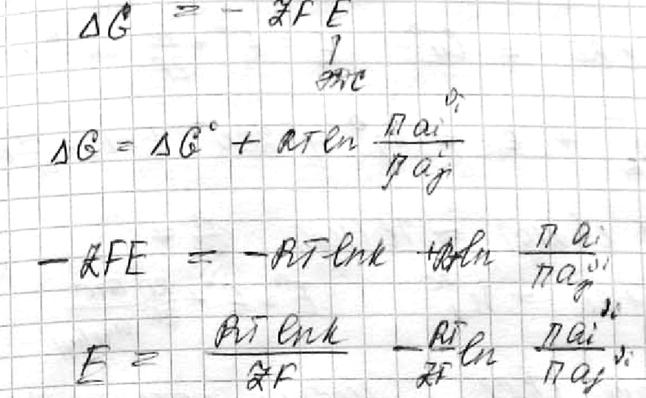 ΔG = - ZFE
ЭДС
ΔG = ΔG° + RT ln Πaᵢ^νᵢ / Πaⱼ^νⱼ
- ZFE = -RT ln K + RT ln Πaᵢ / Πaⱼ^νⱼ
E = RT ln K / ZF - RT/ZF ln Πaᵢ^νᵢ / Πaⱼ^νⱼ